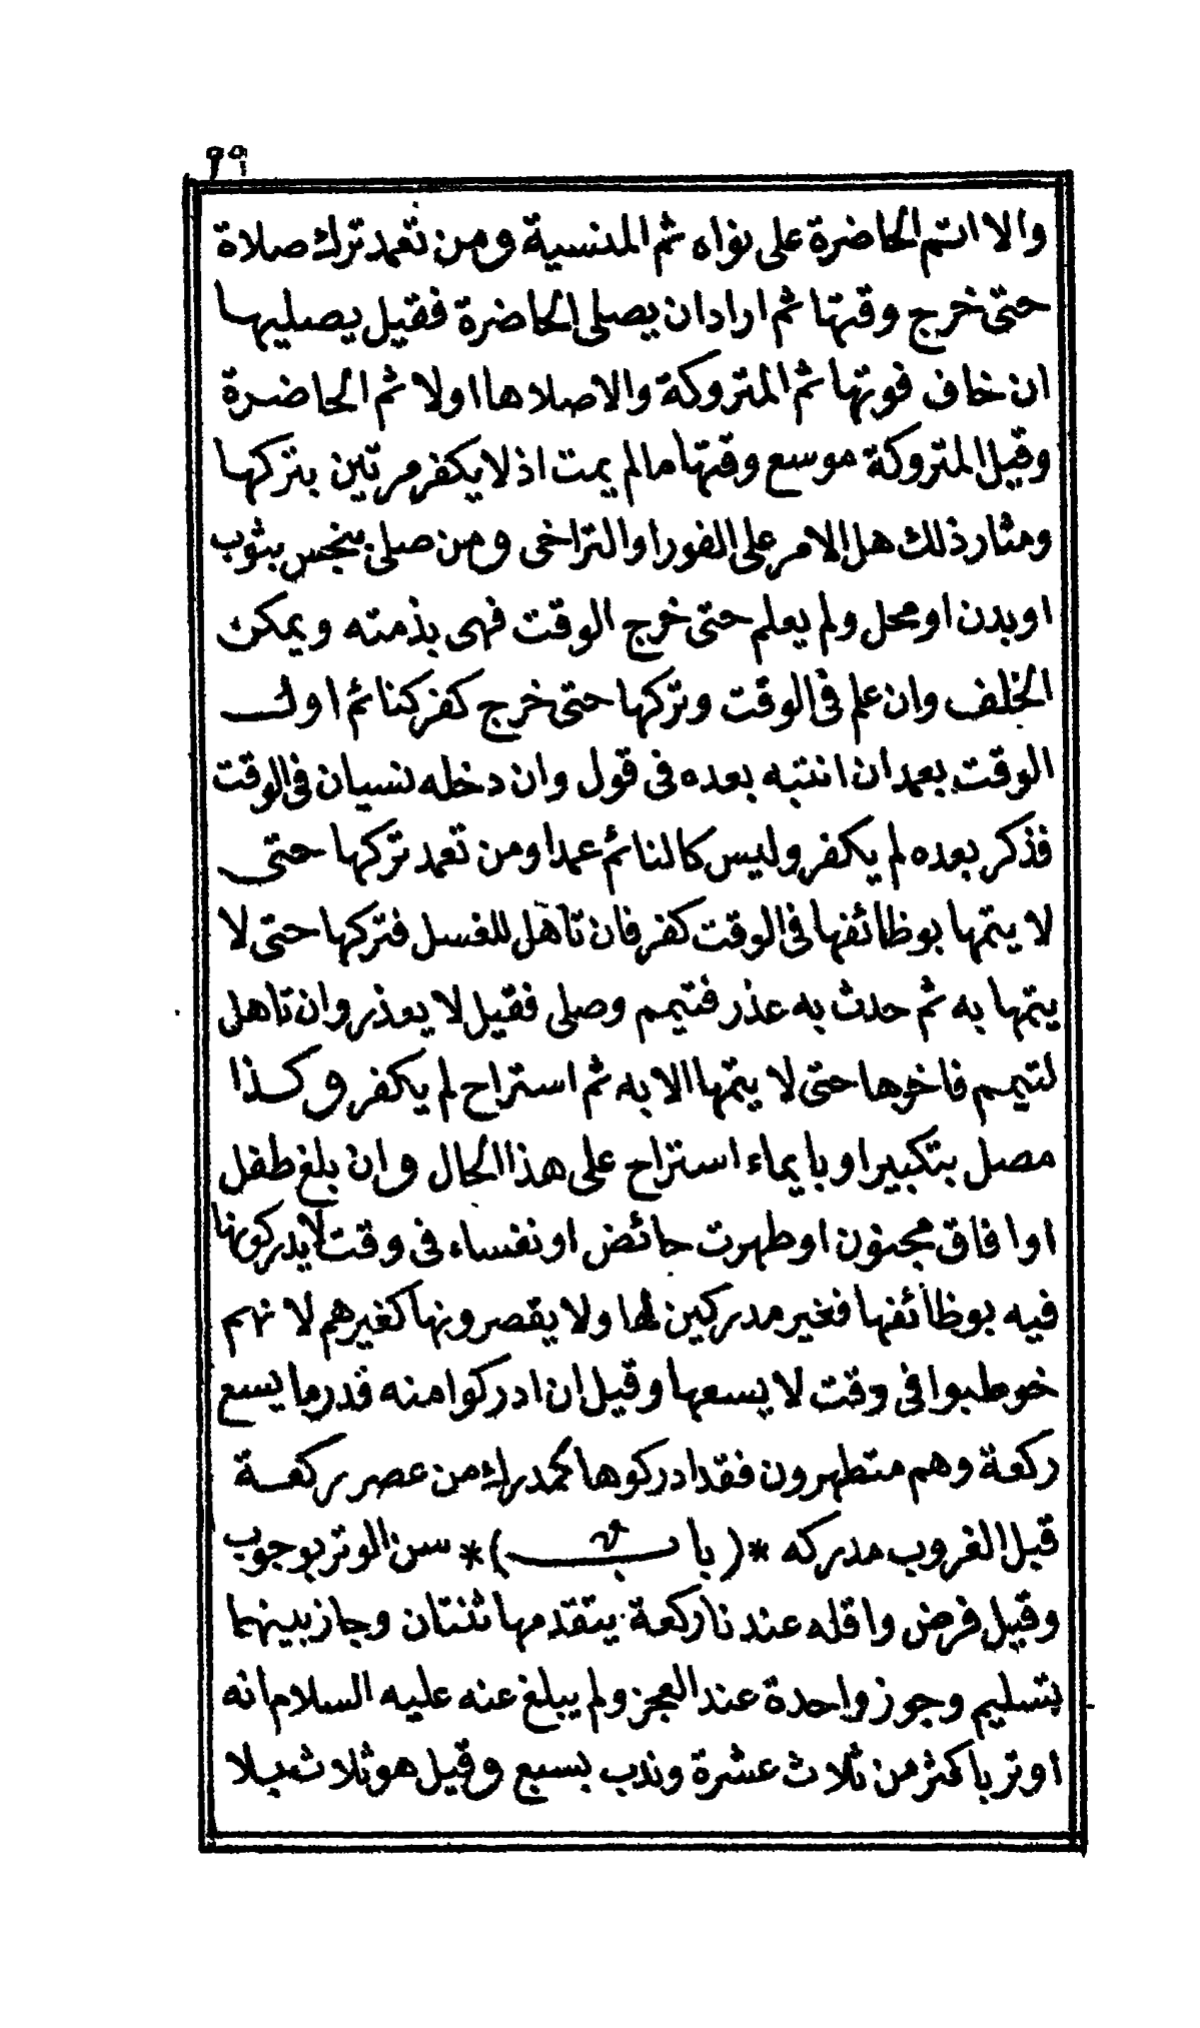 ٩٩
والا اتم الحاضرة على نواه ثم المنسية ومن تعمد ترك صلاة
حتى خرج وقتها ثم اراد ان يصلى الحاضرة فقيل يصليها
ان خاف فوتها ثم المتروكة والا صلاها اولا ثم الحاضرة
وقيل المتروكة موسع وقتها مالم يمت اذ لا يكفر مرتين بتركها
ومثار ذلك هل الامر على الفور او التراخى ومن صلى بنجس بثوب
او بدن او محل ولم يعلم حتى خرج الوقت فهى بذمته ويمكن
الخلف وان علم فى الوقت وتركها حتى خرج كفر كنائم اول
الوقت بعد ان انتبه بعده فى قول وان دخله نسيان فى الوقت
فذكر بعده لم يكفر وليس كالنائم عمدا ومن تعمد تركها حتى
لا يتمها بوظائفها فى الوقت كفر فان تأهل للغسل فتركها حتى لا
يتمها به ثم حدث به عذر فتيمم وصلى فقيل لا يعذر وان تاهل
لتيمم فاخرها حتى لا يتمها الا به ثم استراح لم يكفر وكذا
مصل بتكبير او بايماء استراح على هذا الحال وان بلغ طفل
او افاق مجنون او طهرت حائض او نفساء فى وقت لا يدركونها
فيه بوظائفها فغير مدركين لها ولا يقصرونها كغيرهم لانهم
خوطبوا فى وقت لا يسعها وقيل ان ادركوا منه قدر ما يسع
ركعة وهم متطهرون فقد ادركوها كمدرك من عصر ركعة
قبل الغروب مدركه *( باب )* سن الوتر بوجوب
وقيل فرض واقله عندنا ركعة يتقدمها ثنتان وجاز بينهما
بتسليم وجوز واحدة عند العجز ولم يبلغ عنه عليه السلام انه
اوتر باكثر من ثلاث عشرة وندب بسبع وقيل هو ثلاث بلا